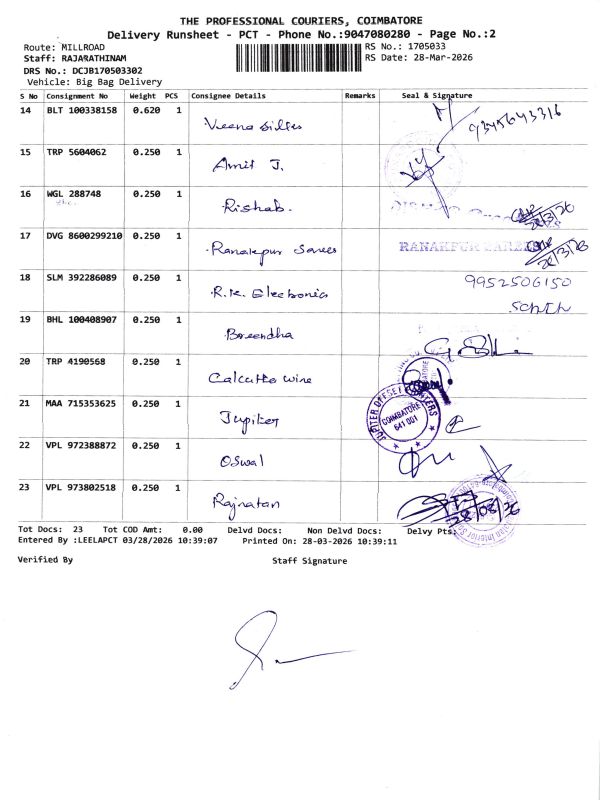 THE PROFESSIONAL COURIERS, COIMBATORE
Delivery Runsheet - PCT - Phone No.:9047080280 - Page No.:2
Route: MILLROAD
RS No.: 1705033
Staff: RAJARATHINAM
RS Date: 28-Mar-2026
DRS No.: DCJB170503302
Vehicle: Big Bag Delivery
S No Consignment No Weight PCS Consignee Details Remarks Seal & Signature
14 BLT 100338158 0.620 1 Veena 9345643316
15 TRP 5604062 0.250 1 Amit J.
16 WGL 288748 0.250 1 Rishab.
17 DVG 8600299210 0.250 1 Ranakpur Sarees RANAKPUR
18 SLM 392286089 0.250 1 R.K. Electronics 9952506150
19 BHL 100408907 0.250 1 Breendha
20 TRP 4190568 0.250 1 Calcutta Wine
21 MAA 715353625 0.250 1 Jupiter JUPITER OFFSET PRINTERS COIMBATORE 641 001
22 VPL 972388872 0.250 1 Oswal
23 VPL 973802518 0.250 1 Rajratan
Tot Docs: 23 Tot COD Amt: 0.00 Delvd Docs: Non Delvd Docs: Delvy Pts:
Entered By :LEELAPCT 03/28/2026 10:39:07 Printed On: 28-03-2026 10:39:11
Verified By Staff Signature